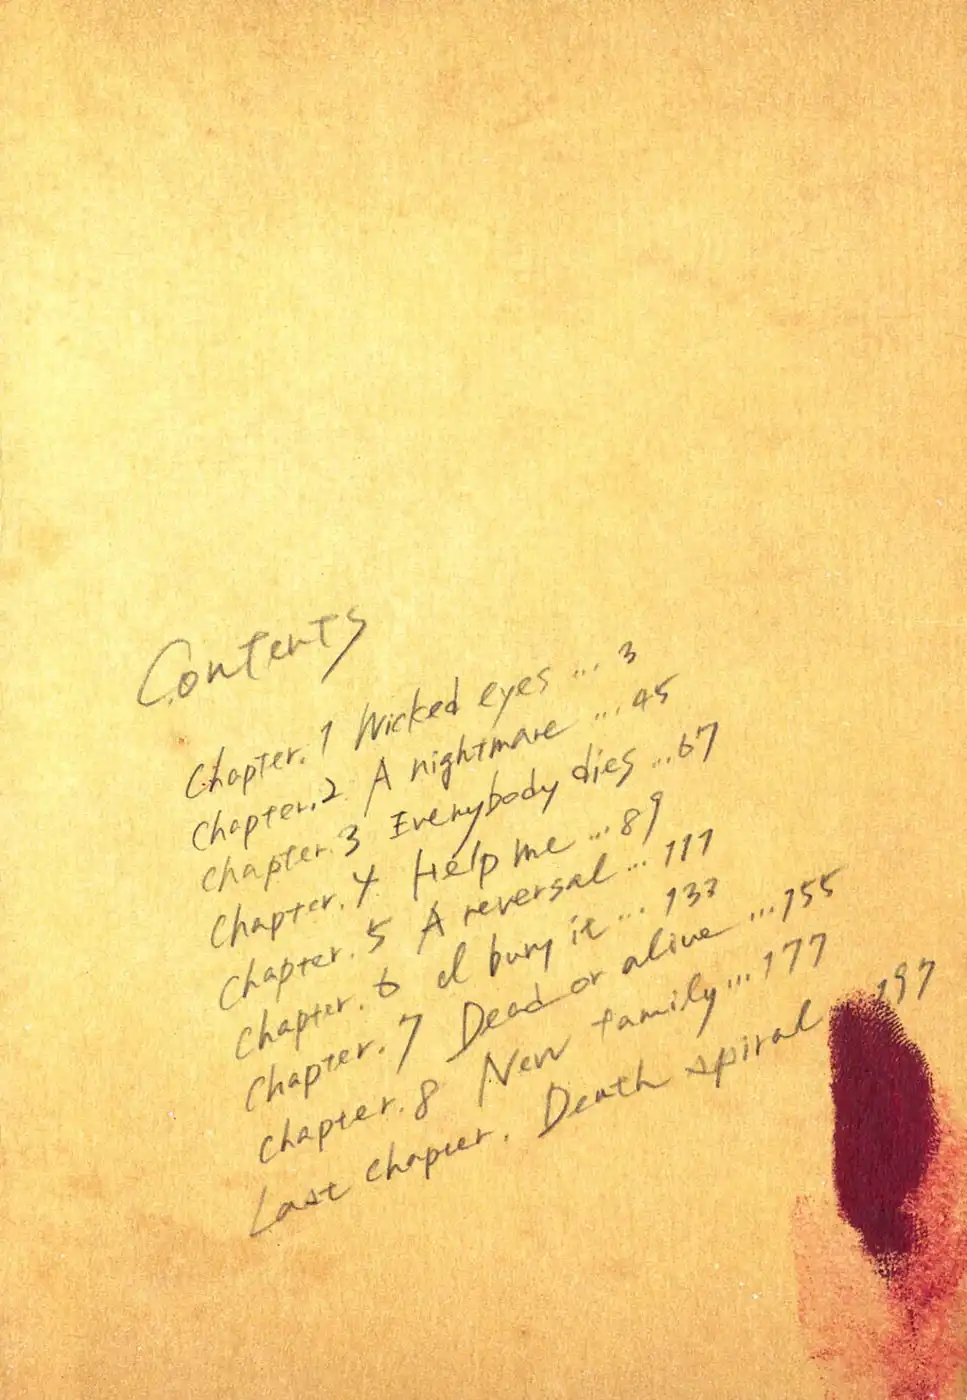 Contents
Chapter. 1 Wicked eyes ... 3
Chapter. 2 A nightmare ... 45
Chapter. 3 Everybody dies ... 67
Chapter. 4 Help me ... 89
Chapter. 5 A reversal ... 111
Chapter. 6 I bury it ... 133
Chapter. 7 Dead or alive ... 155
Chapter. 8 New family ... 177
Last chapter. Death spiral ... 197